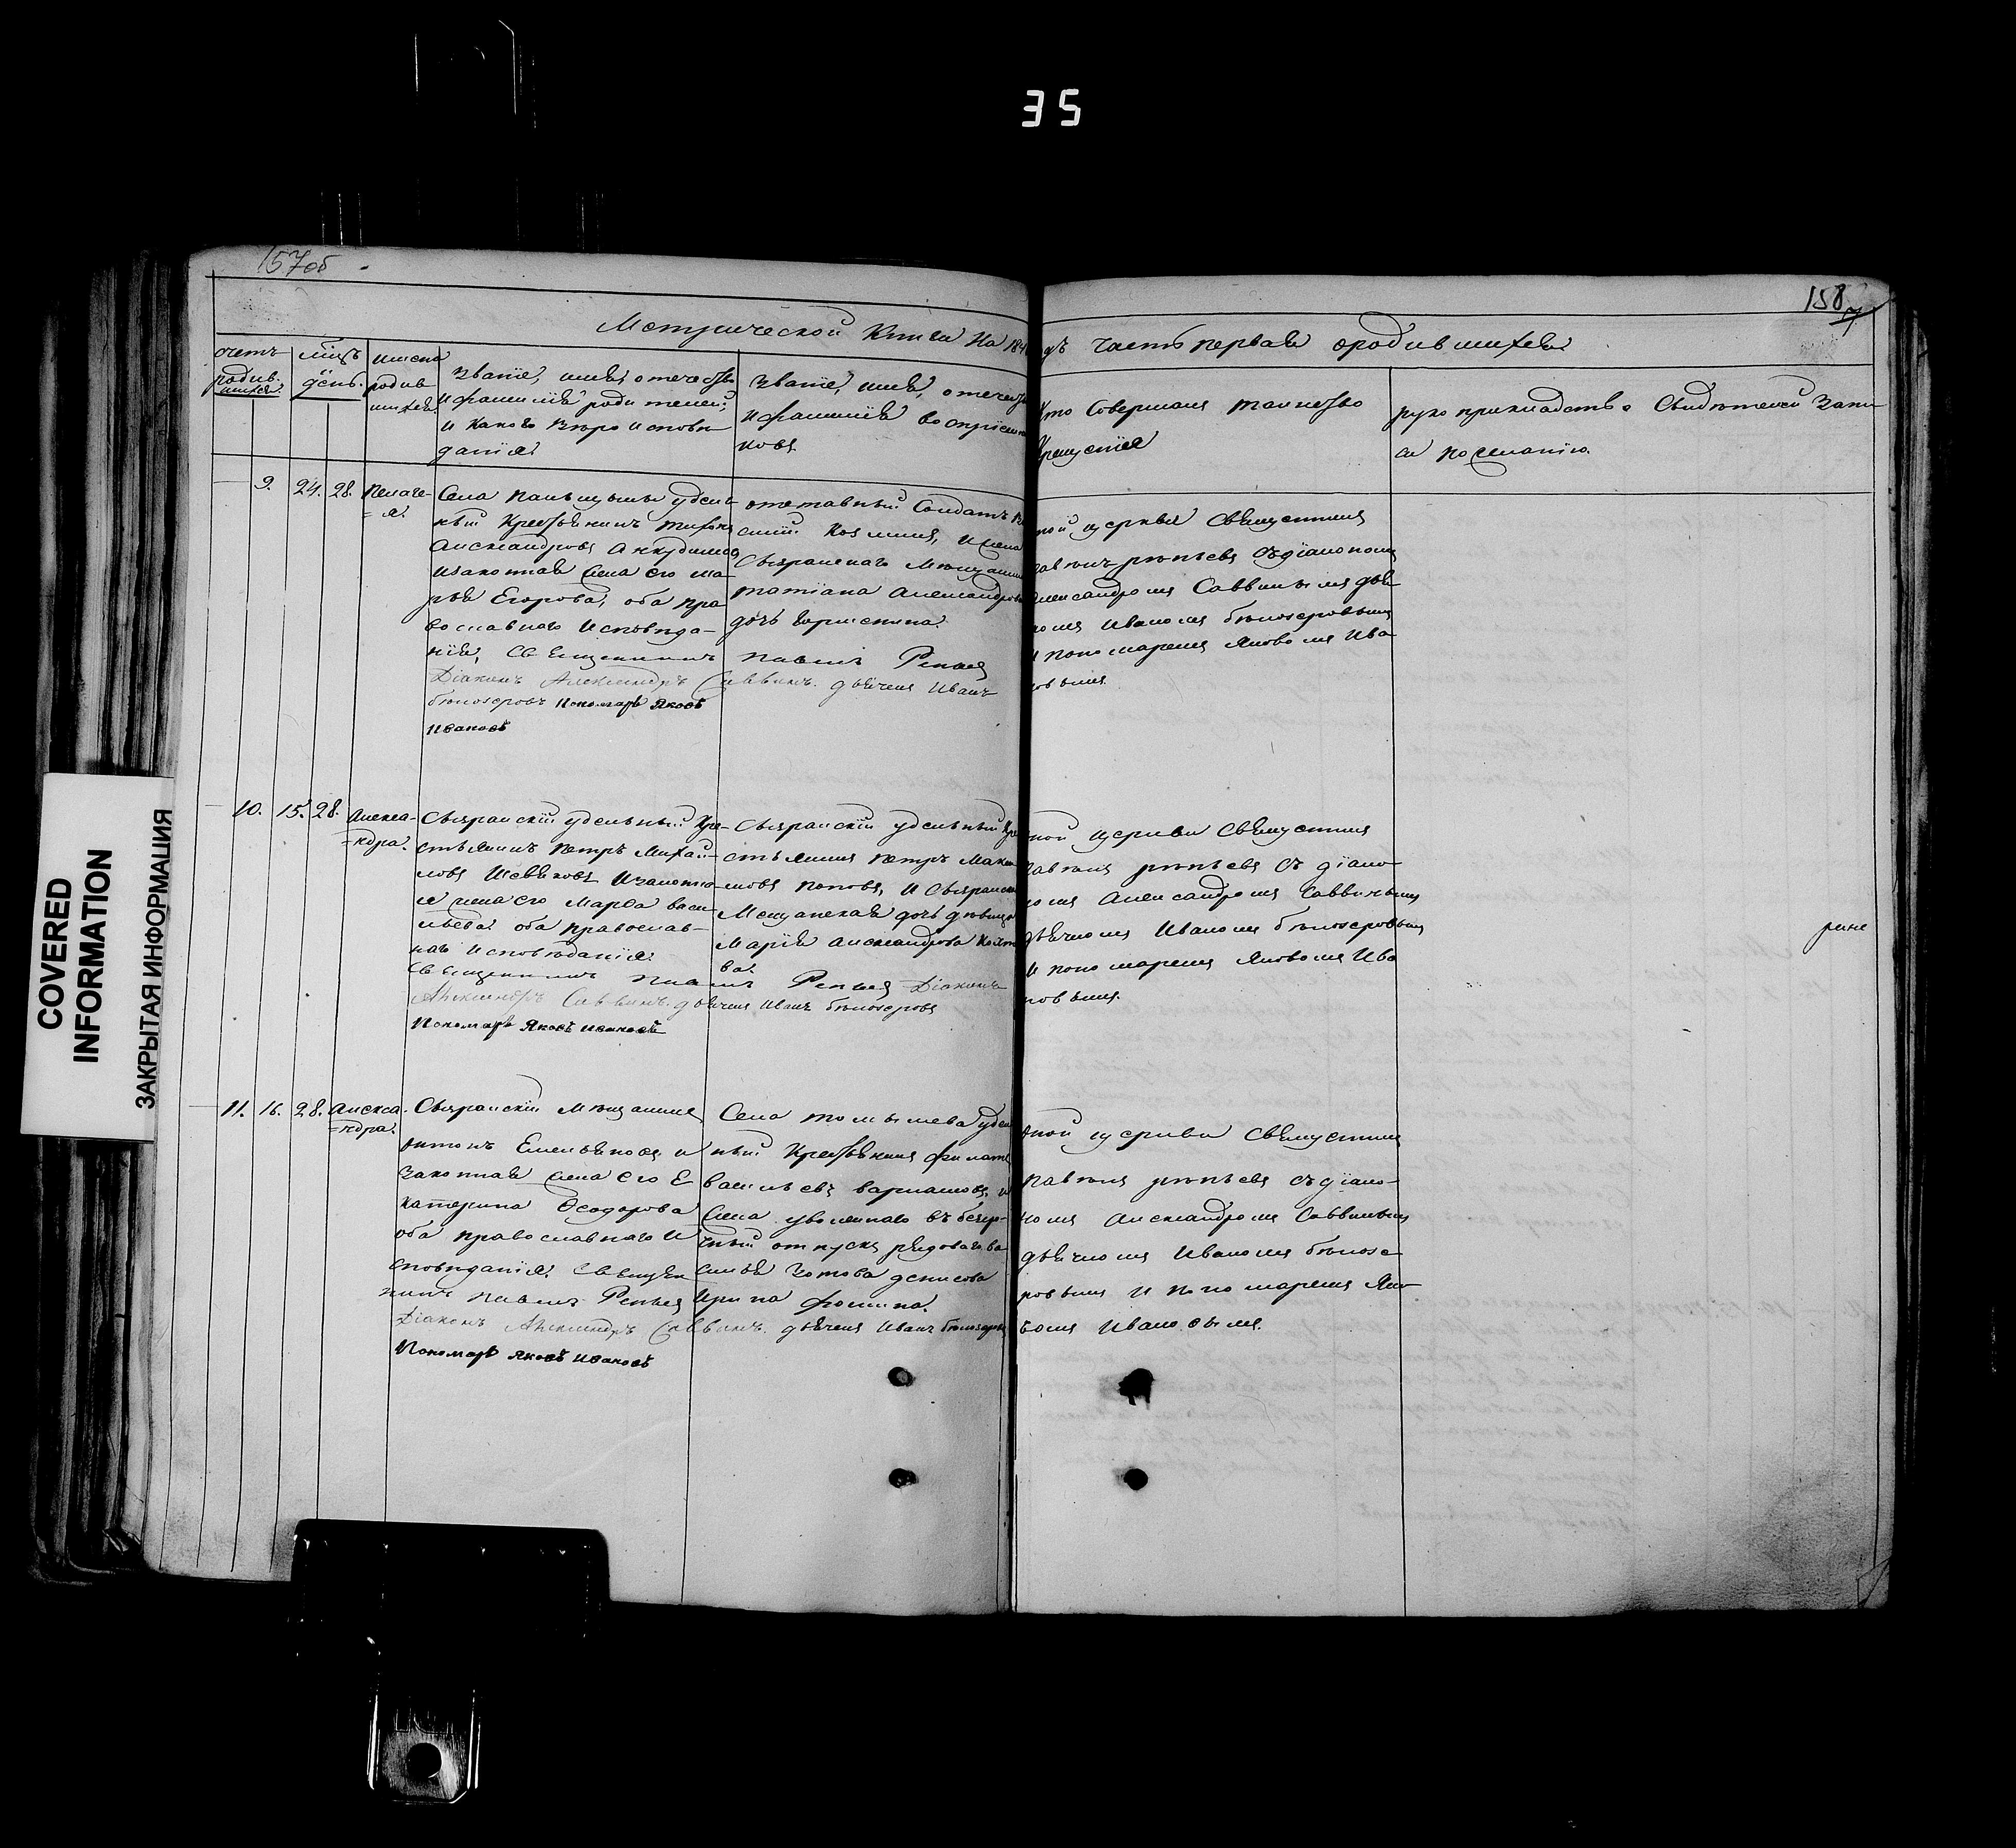 35
157об
158
Метрической Книги На 184
дъ часть первая о родившихся
счетъ родив-шихся.
мѣсць день.
имена родив-шихся
Званіе, имя, отечество
и фамилія родителей,
и какого вѣроисповѣ
данія.
Званіе, имя, отечество
и фамилія воспріемни
ковъ
Кто совершалъ таинство
Крещенія
рукоприкладство свидѣтелей запи
си по желанію.
9. 24. 28. Пелаге-
=я.
Села удѣль-
ный крестьянинъ Тихонъ
Александровъ
и законная жена его Ма-
рья Егорова, оба пра-
вославнаго исповѣда-
нія, Священникъ Павелъ Репьев
Діаконъ Александръ Саввинъ. дьячекъ Иванъ
бѣлозеровъ Пономарь Яковъ
Ивановъ
отставный Солдатъ
и жена
Сызранскаго Мѣщанина
татіана Александрова
дочь
ной церкви Священникъ
Павелъ репьевъ съ діакономъ
Александромъ Саввинымъ дья
комъ Иваномъ бѣлозеровымъ
и пономаремъ Яковомъ Ива
новымъ
10. 15. 28. Алекса-
=ндра.
Сызранскій удѣльный Кре-
стьянинъ Петръ Михай-
ловъ и законна-
я жена его Марѳа Васи-
льева оба православ-
наго исповѣданія.
Священникъ Павелъ Репьев Діаконъ
Александръ Саввинъ. дьячекъ Иванъ бѣлозеровъ
Пономарь Яковъ Ивановъ
Сызранскій удѣльный Кре
стьянинъ Петръ
Поповъ, и Сызранска
Мещанская дочь дѣвица
Марія Александрова
ва.
ной церкви Священникъ
Павелъ репьевъ съ діако-
номъ Александромъ Саввинымъ
дьячкомъ Иваномъ бѣлозеровымъ
и пономаремъ Яковомъ Ива
новымъ.
11. 16. 28. Алекса-
=ндра.
Сызранскій Мѣщанинъ
Антонъ Емельяновъ и
законная жена его Е
катерина Ѳеодорова
оба православнаго и
сповѣданія. Священ
никъ Павелъ Репьев
Діаконъ Александръ Саввинъ. дьячекъ Иванъ бѣлозеровъ
Пономарь Яковъ Ивановъ
Села Томышева удѣл
ный Крестьянинъ Филатъ
Васильевъ и
жена уволеннаго въ безсро-
чный отпускъ рядоваго Ва
силья Зотова денисова
Ирина Фомина.
ной церкви Священникъ
Павелъ репьевъ съ діако-
номъ Александромъ Саввинымъ
дьячкомъ Иваномъ бѣлозе-
ровымъ и пономаремъ Яко-
вомъ Ивановымъ.
COVERED
INFORMATION
ЗАКРЫТАЯ ИНФОРМАЦИЯ